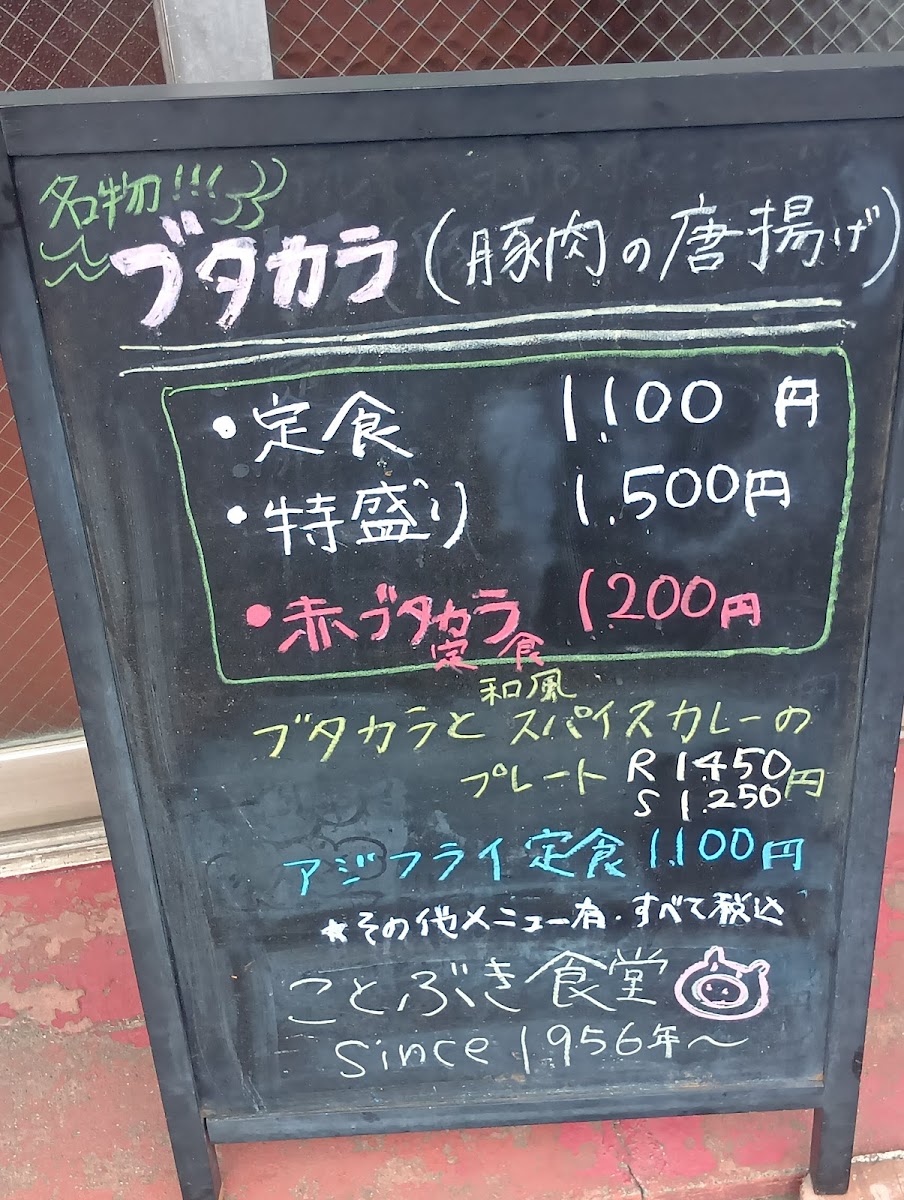 名物!!!
ブタカラ(豚肉の唐揚げ)
・定食 1,100円
・特盛り 1,500円
・赤ブタカラ 1,200円
定食
和風
ブタカラと スパイスカレーの
プレート R 1,450円
S 1,250
アジフライ定食 1,100円
★その他メニュー有・すべて税込
ことぶき食堂
since 1956年〜